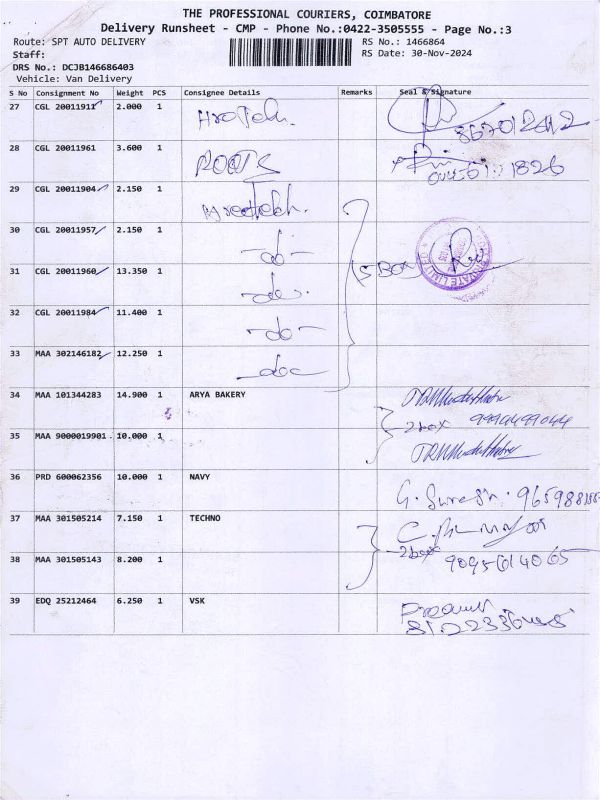 THE PROFESSIONAL COURIERS, COIMBATORE
Delivery Runsheet - CMP - Phone No.:0422-3505555 - Page No.:3
Route: SPT AUTO DELIVERY RS No.: 1466864
Staff: RS Date: 30-Nov-2024
DRS No.: DCJB146686403
Vehicle: Van Delivery
S No Consignment No Weight PCS Consignee Details Remarks Seal & Signature
27 CGL 20011911 2.000 1
28 CGL 20011961 3.600 1 ROOTS
29 CGL 20011904 2.150 1
30 CGL 20011957 2.150 1 -do-
31 CGL 20011960 13.350 1 -do- 5 BOX
32 CGL 20011984 11.400 1 -do-
33 MAA 302146182 12.250 1 -do-
34 MAA 101344283 14.900 1 ARYA BAKERY
2 box 9994499044
35 MAA 9000019901 10.000 1
36 PRD 600062356 10.000 1 NAVY G. Suresh.
37 MAA 301505214 7.150 1 TECHNO
2 box 9095614065
38 MAA 301505143 8.200 1
39 EDQ 25212464 6.250 1 VSK